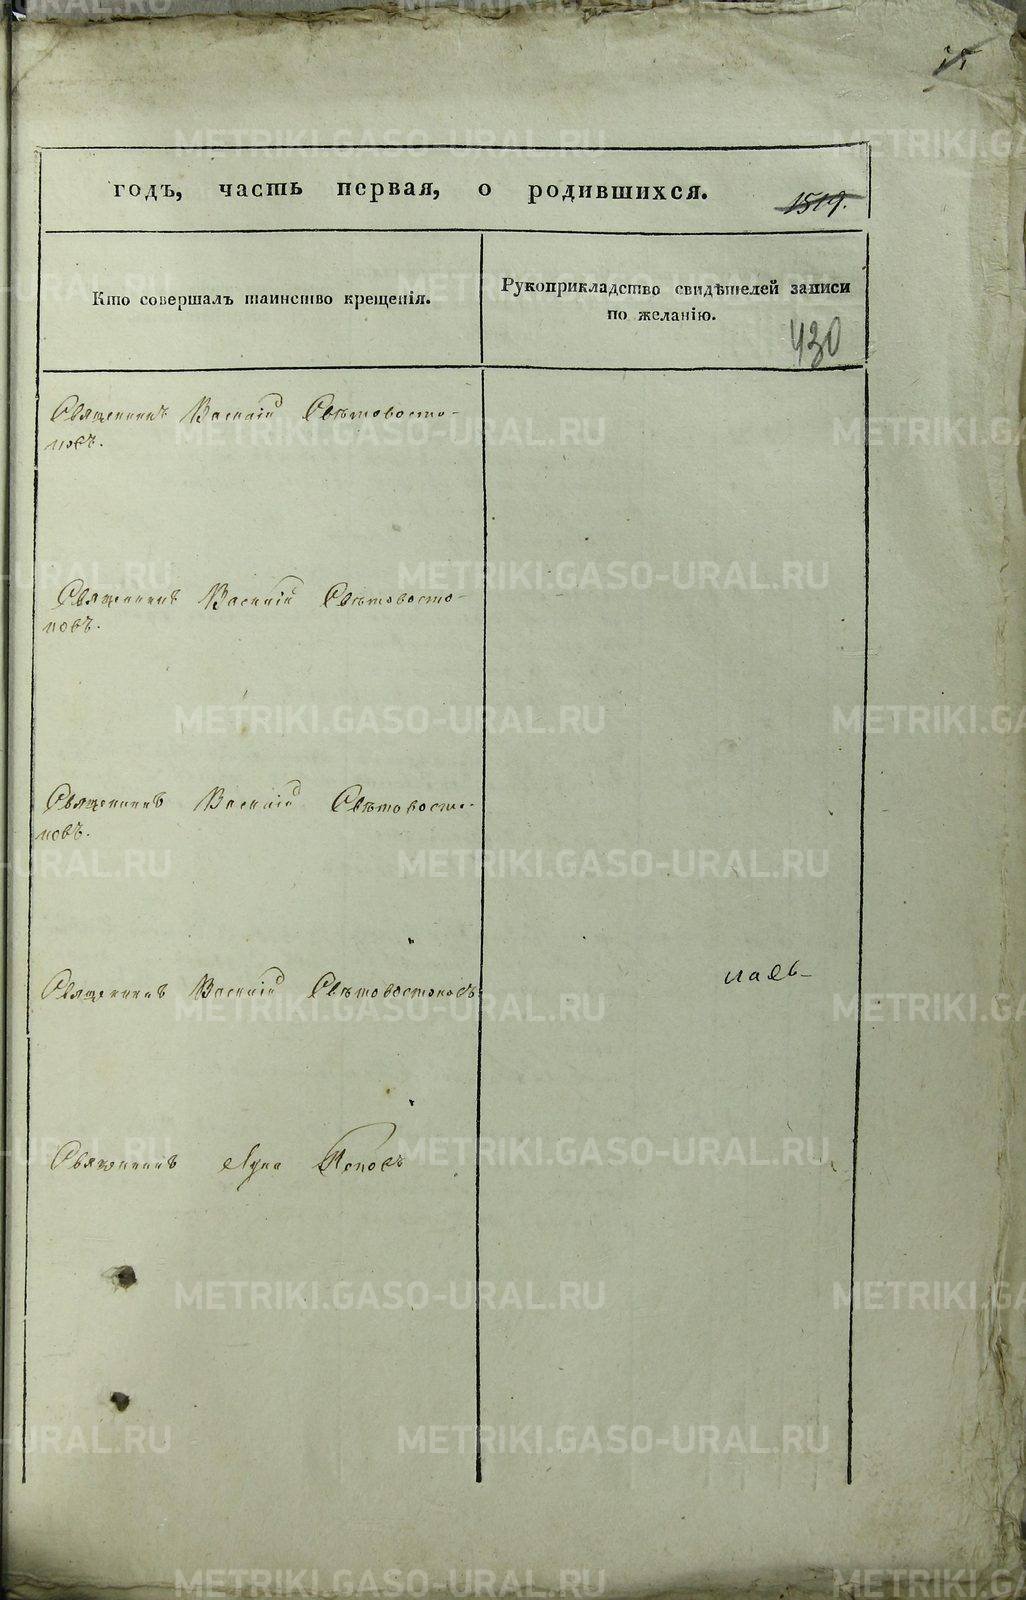 годъ, часть первая, о родившихся.
1519.
Кто совершалъ таинство крещенія.
Рукоприкладство свидѣтелей записи
по желанію.
430
Священникъ Василій Свѣтовосто-
ковъ.
Священникъ Василій Свѣтовосто-
ковъ.
Священникъ Василій Свѣтовосто-
ковъ.
Священникъ Василій Свѣтовостоковъ
Священникъ Лука Поповъ
METRIKI.GASO-URAL.RU